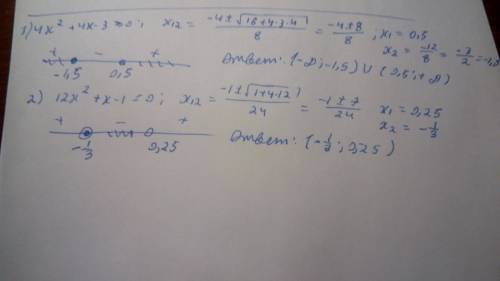 1) 4x² + 4x - 3 = 0; x₁₂ = (-4 ± √(16+4·3·4))/8 = (-4 ± 8)/8; x₁ = 0,5
x₂ = -12/8 = -3/2 = -1,5
+ - +
-1,5 0,5 Ответ: (-∞; -1,5) ∪ (0,5; +∞)
2) 12x² + x - 1 = 0; x₁₂ = (-1 ± √(1+4·12))/24 = (-1 ± 7)/24 x₁ = 0,25
x₂ = -1/3
+ - +
-1/3 0,25 Ответ: (-1/3; 0,25)